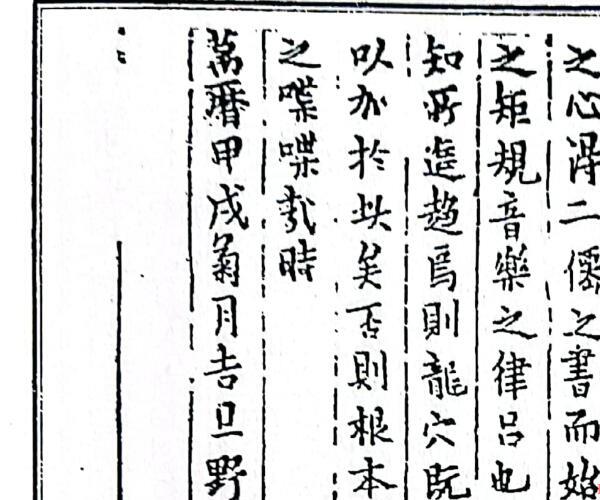 之心得二儒之書而始
之矩規音樂之律呂也
知所造趨焉則龍穴既
以加於此矣否則根本
之喋喋哉時
萬曆甲戌菊月吉旦野